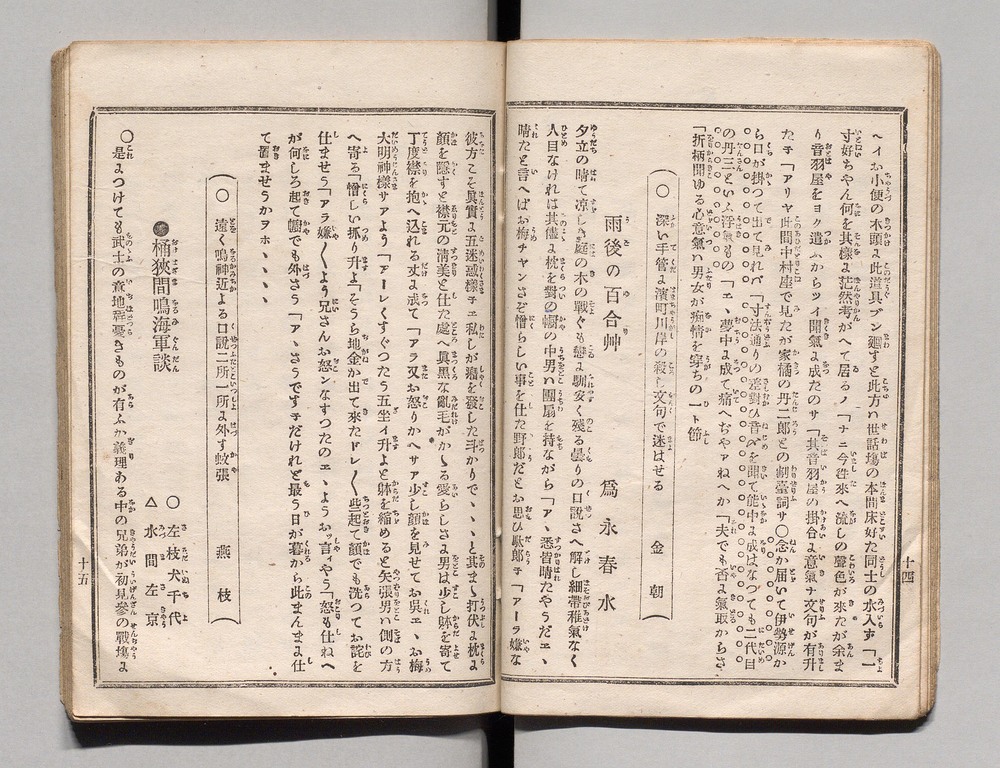 ヘイお小便の木頭よ此道具ブン廻すと此方ハ世話塲の本間床好た同士の水入ず「一
寸好ちやん何を其樣よ茫然考がへて居るノ「ナニ今往來へ流しの聲色が來たが余ま
り音羽屋をヨク遣ふからツイ聞氣よ成たのサ「其音羽屋の掛合よ意氣ナ文句が有升
たチ「アリヤ此間中村座で見たが家橘の丹二郎との割臺詞サ〇念が届いて伊勢源か
ら口が掛つて出て見れバ「寸法通りの差對ひ音〆を聞て能中よ成はなつても二代目
の丹三といふ浮氣もの「エヽ夢中よ成て痛へぢやアねへか「夫でも否よ氣取からさ
「折柄聞ゆる心意氣ハ男女が痴情を穿ちの一ト節
〇深い手管よ濱町川岸の殺し文句で迷はせる 金朝
雨後の百合艸 爲永春水
夕立の晴て凉しき庭の木の戰ぐも戀よ馴安く殘る曇りの口説さへ解し細帶稚氣なく
人目なければ其儘よ枕を對の㡡の中男ハ團扇を持ながら「アヽ悉皆晴たやうだエヽ
晴たと言へばお梅チヤンさぞ憎らしい事を仕た野郎だとお思ひ㱆郎チ「アーラ嫌な
彼方こそ眞實よ五迷惑樣チエ私しが癪を發した斗かりでヽヽと其まヽ打伏よ枕よ
顔を隱すと襟元の淸美と仕た處へ眞黑な亂毛がかゝる愛らしさよ男は少し躰を寄て
丁度襟を抱へ込れる丈よ成て「アラ又お怒りかヘサア少し顔を見せてお呉エヽお梅
大明神樣サアよう「アーレくすぐつたう五坐イ升よと躰を縮めると矢張男ハ側の方
へ寄る「憎しい抓り升よ「そうら地金か出て來たドレ〱些起て顔でも洗つてお詫を
仕ませう「アラ嫌〱よう兄さんお怒ンなすつたのエヽようお言ィやう「怒も仕ねへ
が何しろ起て㡡でも外さう「アヽさうですチだけれど最う日が暮から此まんまよ仕
て置ませうかヲホヽヽヽヽ
〇遠く鳴神近よる口説二所一所よ外す蚊張 燕枝
●桶狹間鳴海軍談 〇左枝犬千代
△水間左京
〇是よつけても武士の意地程憂きものが有ふか義理ある中の兄弟が初見參の戰塲よ
十四
十五